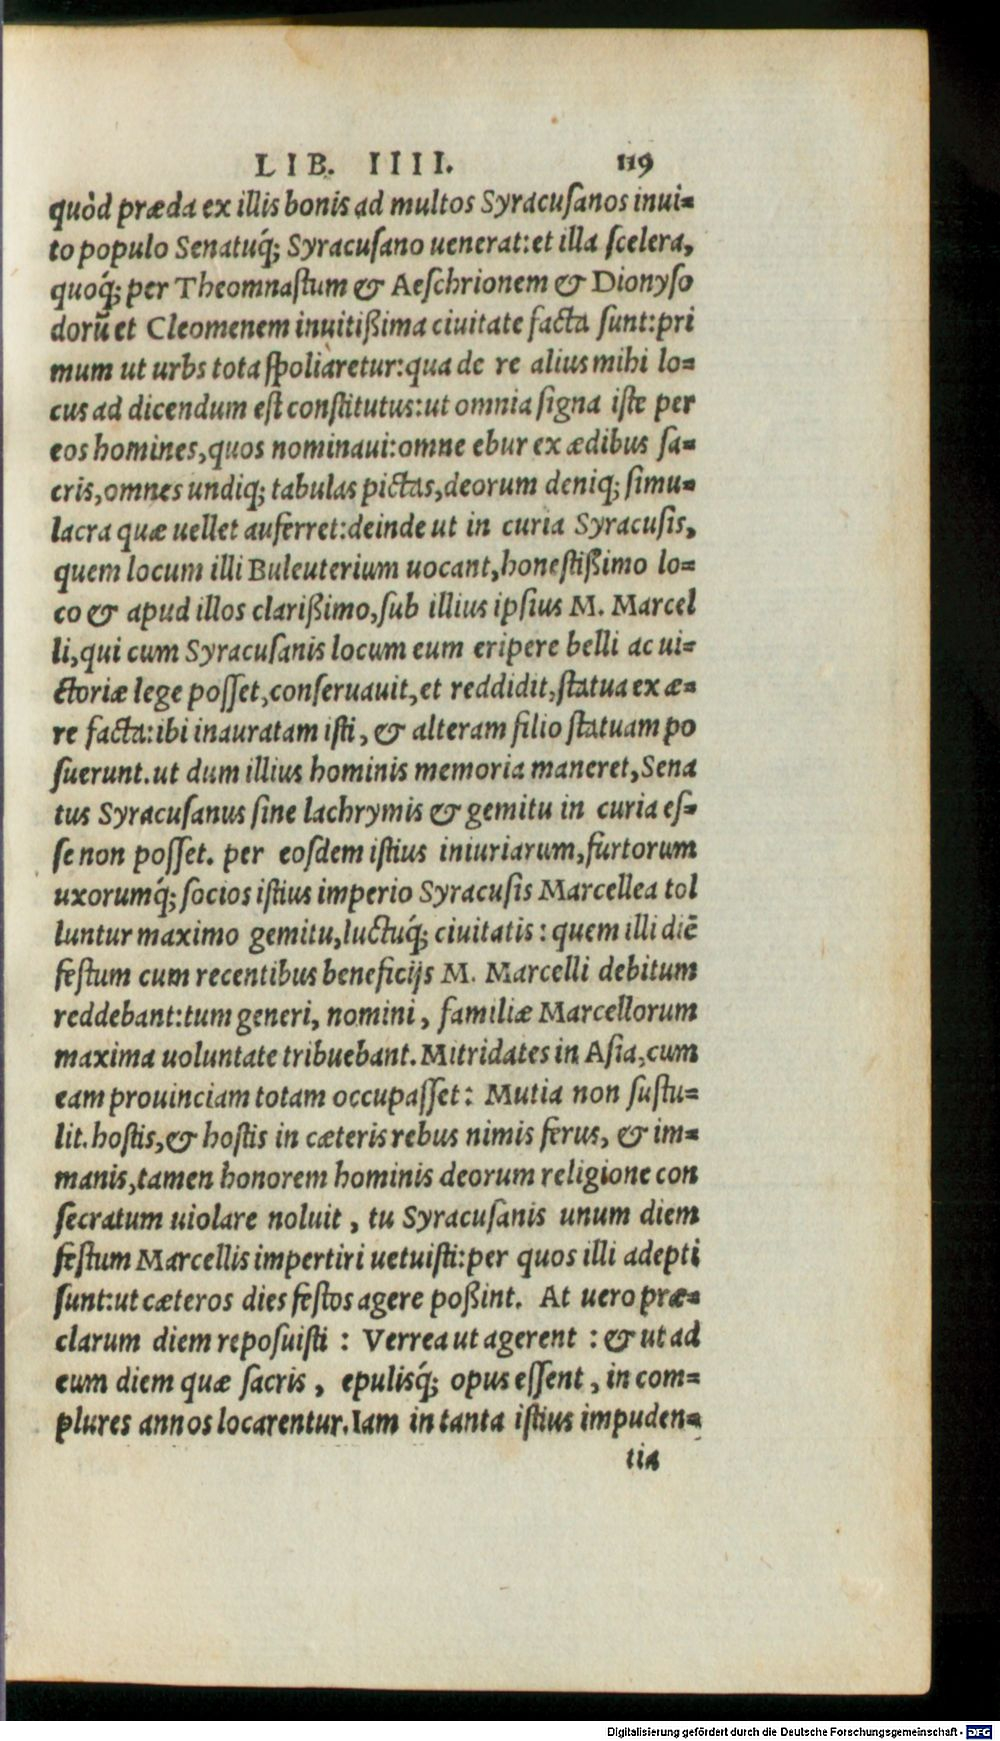 LIB. IIII. 119
quòd præda ex illis bonis ad multos Syracuſanos inui=
to populo Senatuq́; Syracuſano uenerat:et illa ſcelera,
quoq́; per Theomnaſtum & Aeſchrionem & Dionyſo
dorũ et Cleomenem inuitißima ciuitate facta ſunt:pri
mum ut urbs tota ſpoliaretur:qua de re alius mihi lo=
cus ad dicendum eſt conſtitutus:ut omnia ſigna iſte per
eos homines,quos nominaui:omne ebur ex ædibus ſa=
cris,omnes undiq; tabulas pictas,deorum deniq; ſimu=
lacra quæ uellet auferret:deinde ut in curia Syracuſis,
quem locum illi Buleuterium uocant,honeſtißimo lo=
co & apud illos clarißimo,ſub illius ipſius M. Marcel
li,qui cum Syracuſanis locum eum eripere belli ac ui=
ctoriæ lege poſſet,conſeruauit,et reddidit,ſtatua ex æ=
re facta:ibi inauratam iſti, & alteram filio ſtatuam po
ſuerunt.ut dum illius hominis memoria maneret,Sena
tus Syracuſanus ſine lachrymis & gemitu in curia eſ=
ſe non poſſet. per eoſdem iſtius iniuriarum,furtorum
uxorumq́; ſocios iſtius imperio Syracuſis Marcellea tol
luntur maximo gemitu,luctuq́; ciuitatis : quem illi diē
feſtum cum recentibus beneficijs M. Marcelli debitum
reddebant:tum generi, nomini, familiæ Marcellorum
maxima uoluntate tribuebant. Mitridates in Aſia,cum
eam prouinciam totam occupaſſet: Mutia non ſuſtu=
lit. hoſtis,& hoſtis in cæteris rebus nimis ferus, & im=
manis,tamen honorem hominis deorum religione con
ſecratum uiolare noluit, tu Syracuſanis unum diem
feſtum Marcellis impertiri uetuiſti:per quos illi adepti
ſunt:ut cæteros dies feſtos agere poßint. At uero præ=
clarum diem repoſuiſti : Verrea ut agerent : & ut ad
eum diem quæ ſacris, epulisq́; opus eſſent, in com=
plures annos locarentur.Iam in tanta iſtius impuden=
tia
Digitalisierung gefördert durch die Deutsche Forschungsgemeinschaft - DFG